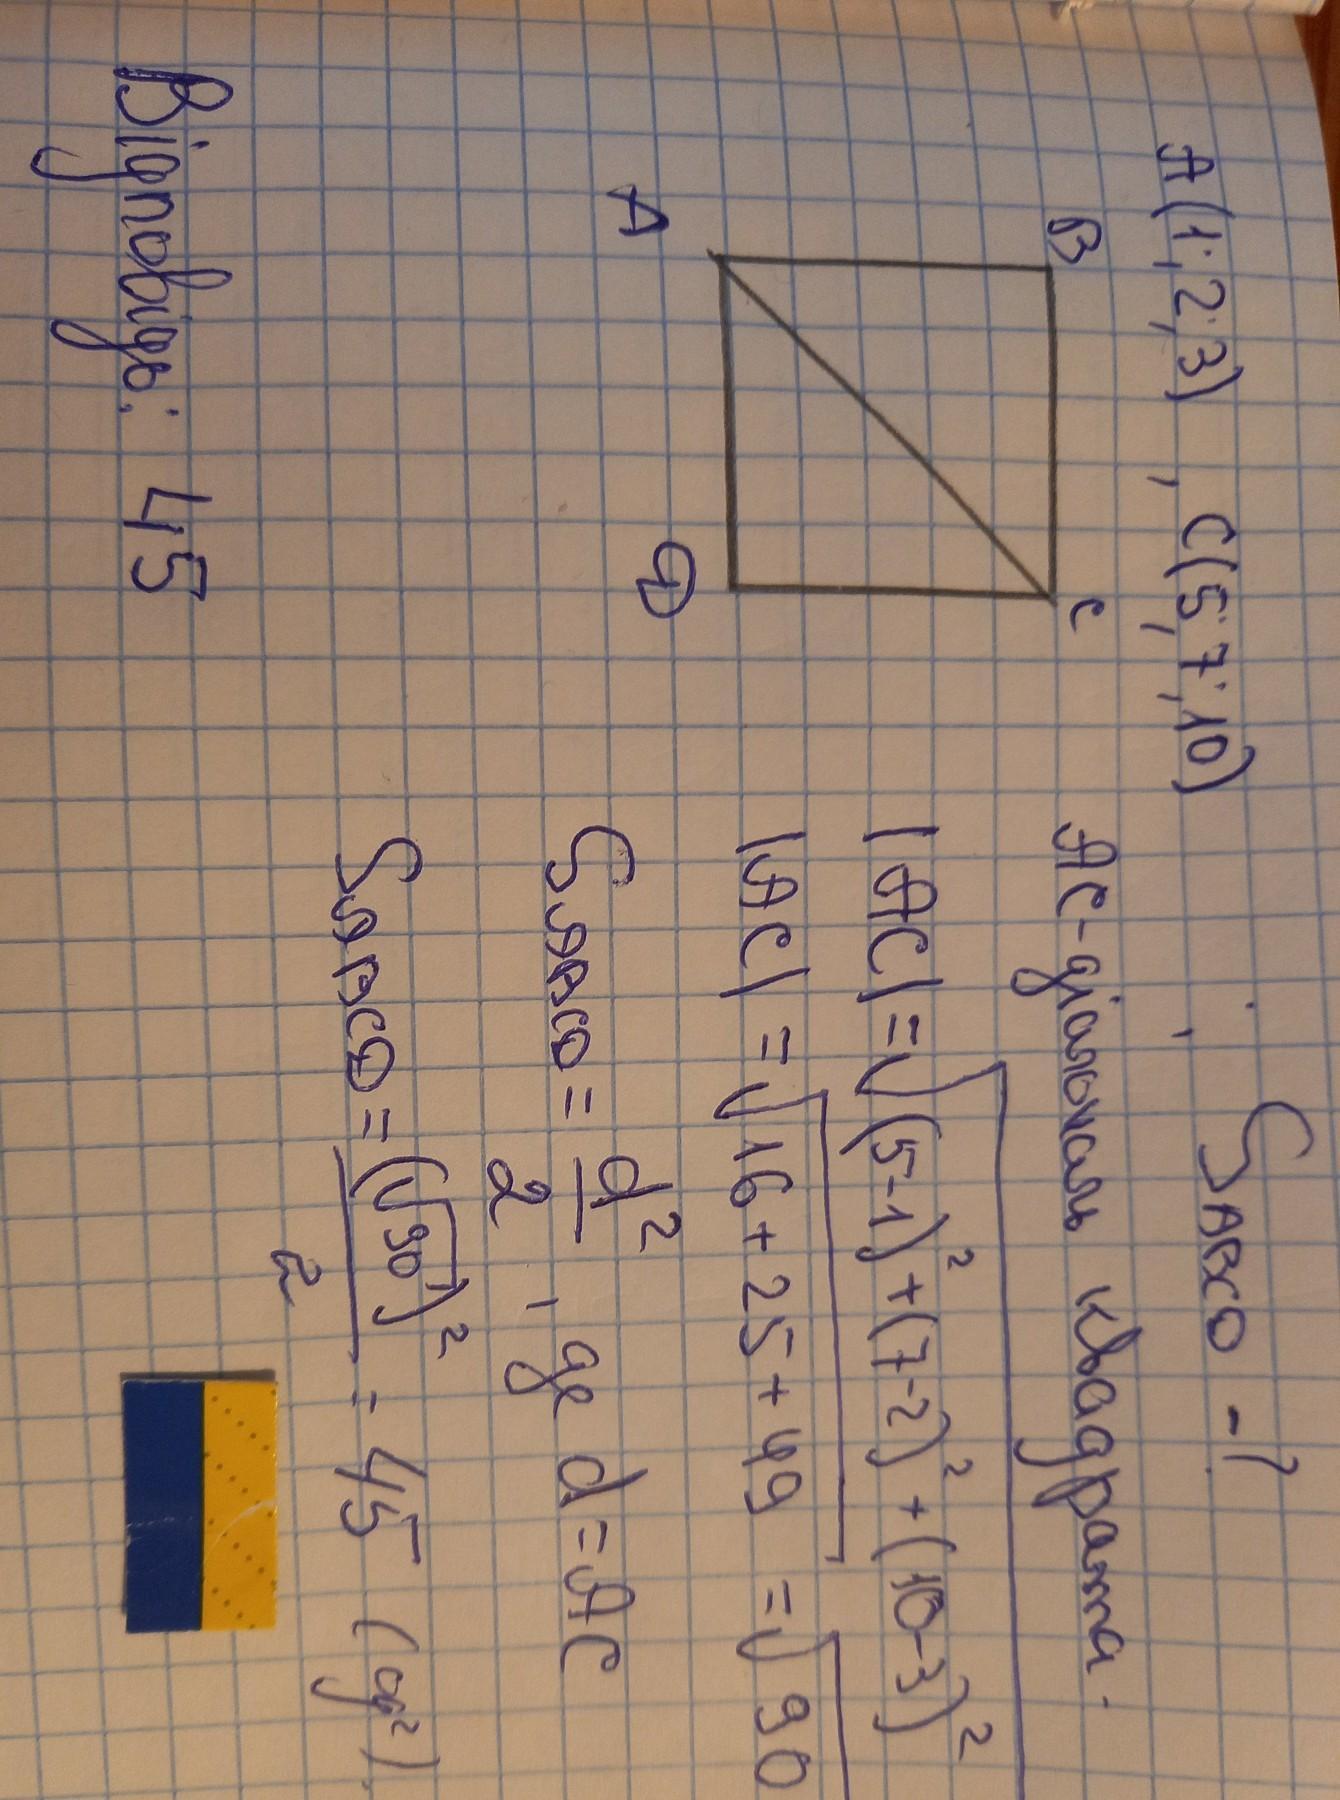 A(1;2;3) , C(5;7;10) ; SABCD - ?
B
C
A
D
AC - діагональ квадрата.
|AC| = √(5-1)² + (7-2)² + (10-3)²
|AC| = √16 + 25 + 49 = √90
SABCD = d²/2 , де d = AC
SABCD = (√90)²/2 = 45 (од²).
Відповідь: 45